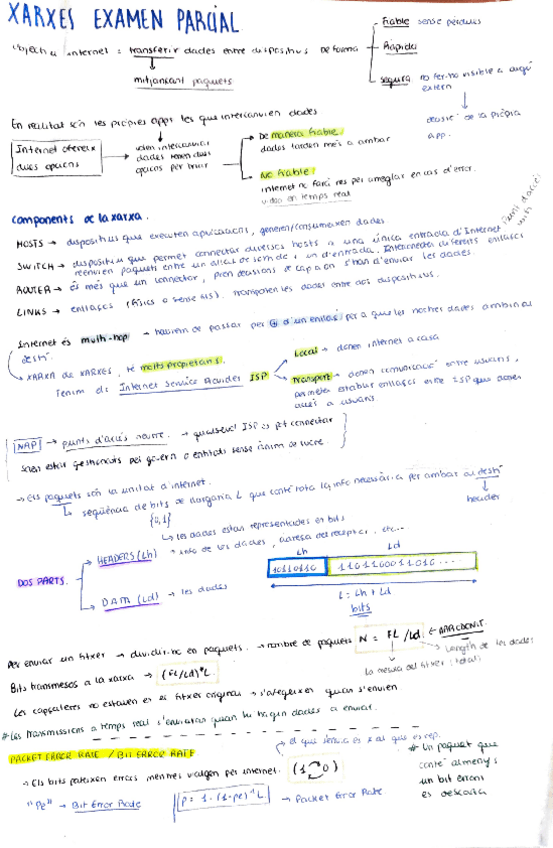 XARXES EXAMEN PARCIAL
Objectiu internet : transferir dades entre dispositius de forma
fiable sense pèrdues
Ràpida
segura no fer-ho visible a algú extern
mitjançant paquets
decisió de la pròpia app.
En realitat són les pròpies apps les que intercanvien dades
Internet ofereix dues opcions
volen intercanviar dades tenen dues opcions per triar
De manera fiable:
dades tarden més a arribar
No fiable:
internet no farà res per arreglar en cas d'error.
video en temps real
Components de la xarxa.
HOSTS → dispositius que executen aplicacions, generen/consumeixen dades
SWITCH → dispositius que permet connectar diverses hosts a una única entrada d'Internet
Punt d'accés wifi
reenvien paquets entre un enllaç de sortida i un d'entrada. Intermedia diferents enllaços
ROUTER → és més que un connector, pren decisions de cap a on s'han d'enviar les dades.
LINKS → enllaços (físics o sense fils). Transporten les dades entre dos dispositius.
Internet és multi-hop → haurem de passar per + d'un enllaç per a que les nostres dades arribin al destí
XARXA de XARXES, té molts propietaris.
Tenim els Internet Service Provider ISP
Local → donen internet a casa
Transport → donen comunicació entre usuaris,
permeten establir enllaços entre ISP que donen accés a usuaris.
NAP → punts d'accés neutre. → qualsevol ISP es pot connectar
Solen estar gestionats pel govern o entitats sense ànim de lucre.
→ Els paquets són la unitat d'internet.
seqüència de bits de llargària L que conté tota la info necessària per arribar al destí
{0,1}
header
les dades estan representades en bits
DOS PARTS.
HEADERS (Lh) → info de les dades, adresa del receptor, etc...
DATA (Ld) → les dades
Lh Ld
10110110 110110011010....
L = Lh + Ld
bits
Per enviar un fitxer → dividir-ho en paquets. → nombre de paquets N = FL/Ld. ← ARRODONIT.
La mesura del fitxer (total)
Length de les dades
Bits transmesos a la xarxa → (FL/Ld)*L.
Les capçaleres no estaven en el fitxer original → s'afegeixen quan s'envien.
# Les transmissions a temps real s'envien quan hi hagin dades a enviar.
PACKET ERROR RATE / BIT ERROR RATE
→ Els bits pateixen errors mentres viatgen per internet. (1 0)
el que s'envia es ≠ al que es rep.
# Un paquet que conté almenys un bit erroni es descarta
"Pe" → Bit Error Rate
P = 1 - (1-pe)^L. → Packet Error Rate